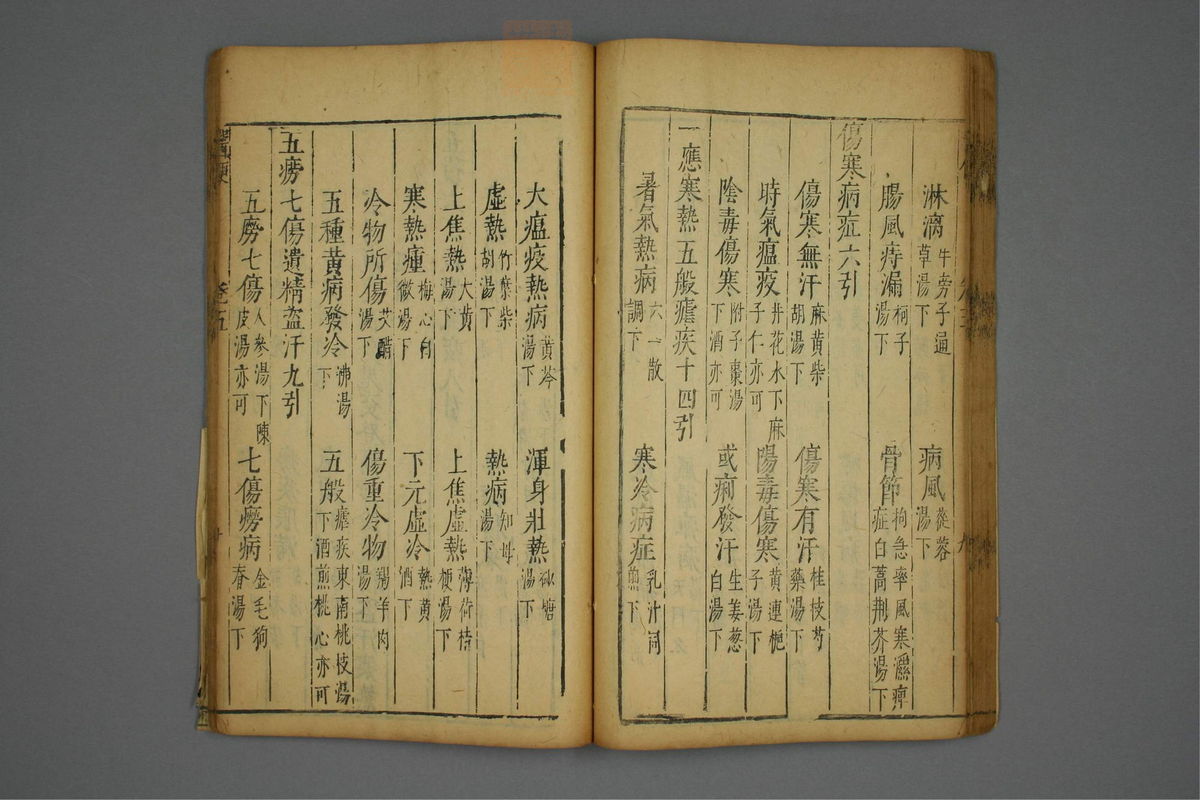 淋漓 牛旁子通草湯下 病風 蓯蓉湯下
腸風痔漏 柯子湯下 骨節 拘急率風寒濕痺症白蒿荆芥湯下
傷寒病症六引
傷寒無汗 麻黄柴胡湯下 傷寒有汗 桂枝芍藥湯下
時氣瘟疫 井花水下麻子仁亦可 陽毒傷寒 黄連梔子湯下
陰毒傷寒 附子棗湯下酒亦可 或痢發汗 生姜葱白湯下
一應寒熱五般瘧疾十四引
暑氣熱病 六一散調下 寒冷病症 乳汁同煎下
大瘟疫熱病 黄芩湯下 渾身壯熱 砂糖湯下
虛熱 竹葉柴胡湯下 熱病 知母湯下
上焦熱 大黄湯下 上焦虛熱 薄荷桔梗湯下
寒熱瘇 梅心白微湯下 下元虛冷 熱黄酒下
冷物所傷 艾醋湯下 傷重冷物 羯羊肉湯下
五種黄病發冷 沸湯下 五般 瘧疾東南桃枝湯下酒煎桃心亦可
五癆七傷遺精盗汗九引
五癆七傷 人參湯下陳皮湯亦可 七傷癆病 金毛狗春湯下
卷五